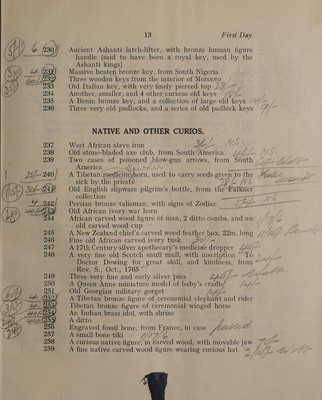 13
First Day
230 Ancient Ashanti latch-lifter, with bronze human figure
handle (said to have been a royal key, used by the
Ashanti kings)
231 Massive beaten bronze key, from South Nigeria
232 Three wooden keys from the interior of Morocco
233 Old Italian key, with very finely pierced top
234 Another, smaller, and 4 other curious old keys
235 A Benin bronze key, and a collection of large old keys
236 Three very old padlocks, and a series of old padlock keys
NATIVE AND OTHER CURIOS.
237 West African slave iron
238 Old stone-bladed axe club, from South America
239 Two cases of poisoned blow-gun arrows, from South
America
240 A Tibetan medicine horn, used to carry seeds given to the
sick by the priests
241 Old English slipware pilgrim's bottle, from the Falkner
collection
242 Persian bronze talisman, with signs of Zodiac
243 Old African ivory war horn
244 African carved wood figure of man, 2 ditto combs, and an
old carved wood cup
245 A New Zealand chief's carved wood feather box, 22in. long
246 Fine old African carved ivory tusk
247 A 17th Century silver apothecary's medicine dropper
248 A very fine old Scotch snuff mull, with inscription "To
Doctor Dowing for great skill, and kindness, from
Rev. S., Oct., 1765"
249 Three very fine and early silver pins
250 A Queen Anne miniature model of baby's cradle
251 Old Georgian military gorget
252 A Tibetan bronze figure of ceremonial elephant and rider
253 Tibetan bronze figure of ceremonial winged horse
254 An Indian brass idol, with shrine
255 A ditto
256 Engraved fossil bone, from France, in case passed
257 A small bone tiki
258 A curious native figure, in carved wood, with movable jaw
259 A fine native carved wood figure wearing curious hat